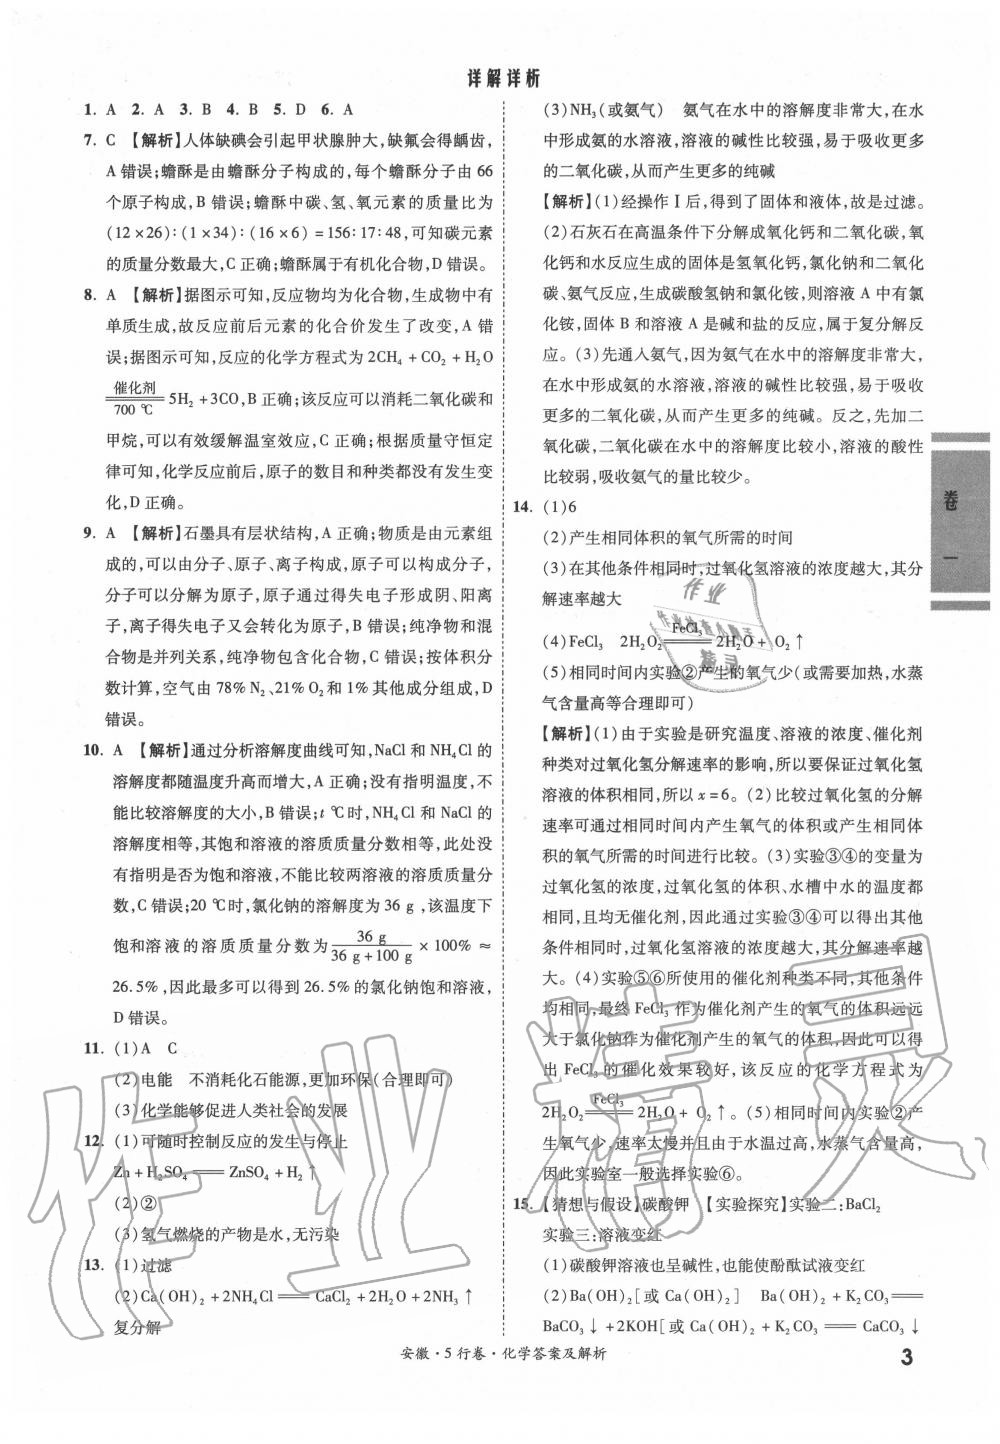 详解详析
1. A 2. A 3. B 4. B 5. D 6. A
7. C 【解析】人体缺碘会引起甲状腺肿大,缺氟会得龋齿,
A 错误;蟾酥是由蟾酥分子构成的,每个蟾酥分子由 66
个原子构成,B 错误;蟾酥中碳、氢、氧元素的质量比为
(12×26)∶(1×34)∶(16×6)=156∶17∶48,可知碳元素
的质量分数最大,C 正确;蟾酥属于有机化合物,D 错误。
8. A 【解析】据图示可知,反应物均为化合物,生成物中有
单质生成,故反应前后元素的化合价发生了改变,A 错
误;据图示可知,反应的化学方程式为 2CH₄+CO₂+H₂O
催化剂
700 ℃ 5H₂+3CO,B 正确;该反应可以消耗二氧化碳和
甲烷,可以有效缓解温室效应,C 正确;根据质量守恒定
律可知,化学反应前后,原子的数目和种类都没有发生变
化,D 正确。
9. A 【解析】石墨具有层状结构,A 正确;物质是由元素组
成的,可以由分子、原子、离子构成,原子可以构成分子,
分子可以分解为原子,原子通过得失电子形成阴、阳离
子,离子得失电子又会转化为原子,B 错误;纯净物和混
合物是并列关系,纯净物包含化合物,C 错误;按体积分
数计算,空气由 78% N₂、21% O₂和 1% 其他成分组成,D
错误。
10. A 【解析】通过分析溶解度曲线可知,NaCl 和 NH₄Cl 的
溶解度都随温度升高而增大,A 正确;没有指明温度,不
能比较溶解度的大小,B 错误;t ℃时,NH₄Cl 和 NaCl 的
溶解度相等,其饱和溶液的溶质质量分数相等,此处没
有指明是否为饱和溶液,不能比较两溶液的溶质质量分
数,C 错误;20 ℃时,氯化钠的溶解度为 36 g,该温度下
饱和溶液的溶质质量分数为 36 g / 36 g+100 g ×100%≈
26.5%,因此最多可以得到 26.5% 的氯化钠饱和溶液,
D 错误。
11. (1)A C
(2)电能 不消耗化石能源,更加环保(合理即可)
(3)化学能够促进人类社会的发展
12. (1)可随时控制反应的发生与停止
Zn+H₂SO₄══ZnSO₄+H₂↑
(2)②
(3)氢气燃烧的产物是水,无污染
13. (1)过滤
(2)Ca(OH)₂+2NH₄Cl══CaCl₂+2H₂O+2NH₃↑
复分解
(3)NH₃(或氨气) 氨气在水中的溶解度非常大,在水
中形成氨的水溶液,溶液的碱性比较强,易于吸收更多
的二氧化碳,从而产生更多的纯碱
【解析】(1)经操作Ⅰ后,得到了固体和液体,故是过滤。
(2)石灰石在高温条件下分解成氧化钙和二氧化碳,氧
化钙和水反应生成的固体是氢氧化钙,氯化钠和二氧化
碳、氨气反应,生成碳酸氢钠和氯化铵,则溶液 A 中有氯
化铵,固体 B 和溶液 A 是碱和盐的反应,属于复分解反
应。(3)先通入氨气,因为氨气在水中的溶解度非常大,
在水中形成氨的水溶液,溶液的碱性比较强,易于吸收
更多的二氧化碳,从而产生更多的纯碱。反之,先加二
氧化碳,二氧化碳在水中的溶解度比较小,溶液的酸性
比较弱,吸收氨气的量比较少。
14. (1)6
(2)产生相同体积的氧气所需的时间
(3)在其他条件相同时,过氧化氢溶液的浓度越大,其分
解速率越大
(4)FeCl₃ 2H₂O₂ FeCl₃══ 2H₂O+O₂↑
(5)相同时间内实验②产生的氧气少(或需要加热,水蒸
气含量高等合理即可)
【解析】(1)由于实验是研究温度、溶液的浓度、催化剂
种类对过氧化氢分解速率的影响,所以要保证过氧化氢
溶液的体积相同,所以 x=6。(2)比较过氧化氢的分解
速率可通过相同时间内产生氧气的体积或产生相同体
积的氧气所需的时间进行比较。(3)实验③④的变量为
过氧化氢的浓度,过氧化氢的体积、水槽中水的温度都
相同,且均无催化剂,因此通过实验③④可以得出其他
条件相同时,过氧化氢溶液的浓度越大,其分解速率越
大。(4)实验⑤⑥所使用的催化剂种类不同,其他条件
均相同,最终 FeCl₃作为催化剂产生的氧气的体积远远
大于氯化钠作为催化剂产生的氧气的体积,因此可以得
出 FeCl₃的催化效果较好,该反应的化学方程式为
2H₂O₂ FeCl₃══ 2H₂O+O₂↑。(5)相同时间内实验②产
生氧气少,速率太慢并且由于水温过高,水蒸气含量高,
因此实验室一般选择实验⑥。
15. 【猜想与假设】碳酸钾 【实验探究】实验二:BaCl₂
实验三:溶液变红
(1)碳酸钾溶液也呈碱性,也能使酚酞试液变红
(2)Ba(OH)₂[或 Ca(OH)₂] Ba(OH)₂+K₂CO₃══
BaCO₃↓+2KOH[或 Ca(OH)₂+K₂CO₃══CaCO₃↓
卷一
安徽·5 行卷·化学答案及解析
3
作业精灵
作业
精灵